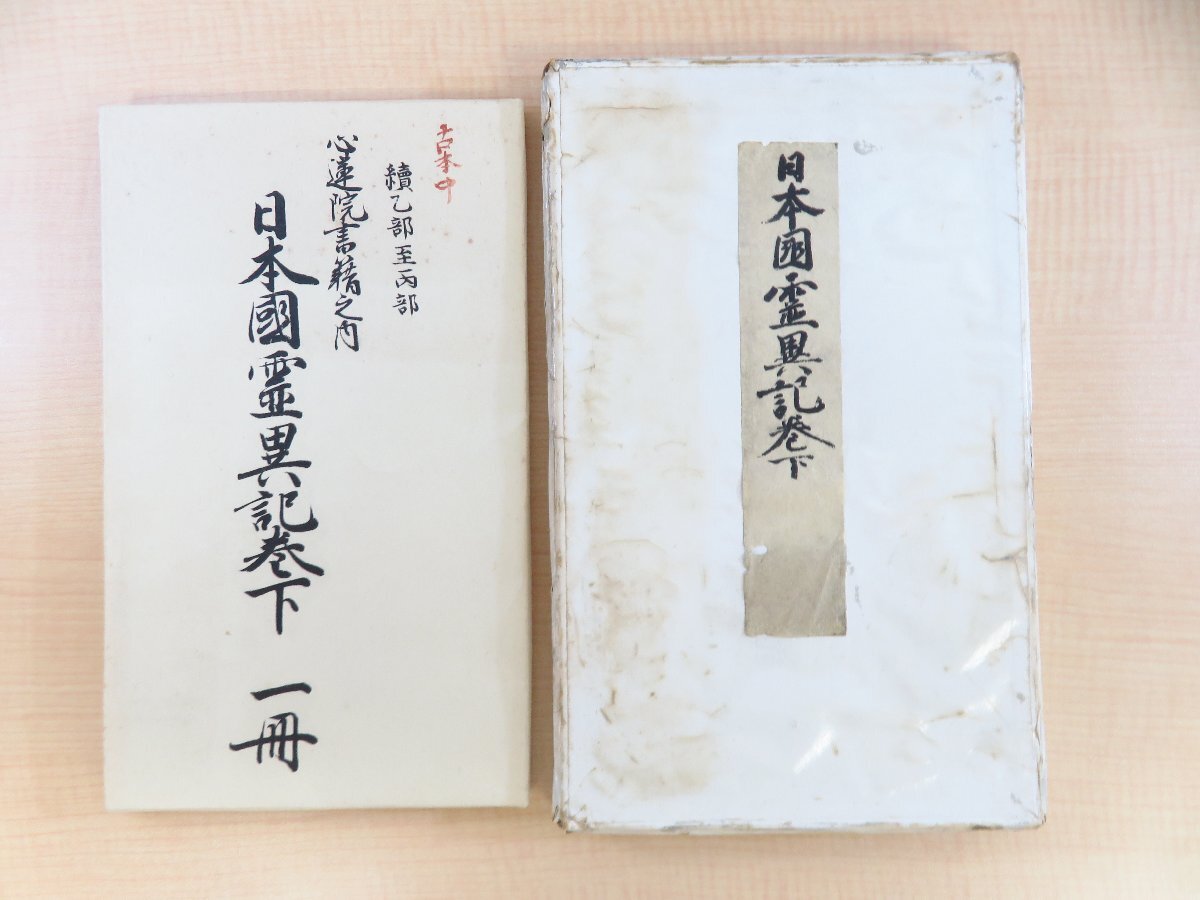 古本中
續乙部至丙部
心蓮院書籍之内
日本國霊異記巻下 一冊
日本國霊異記巻下